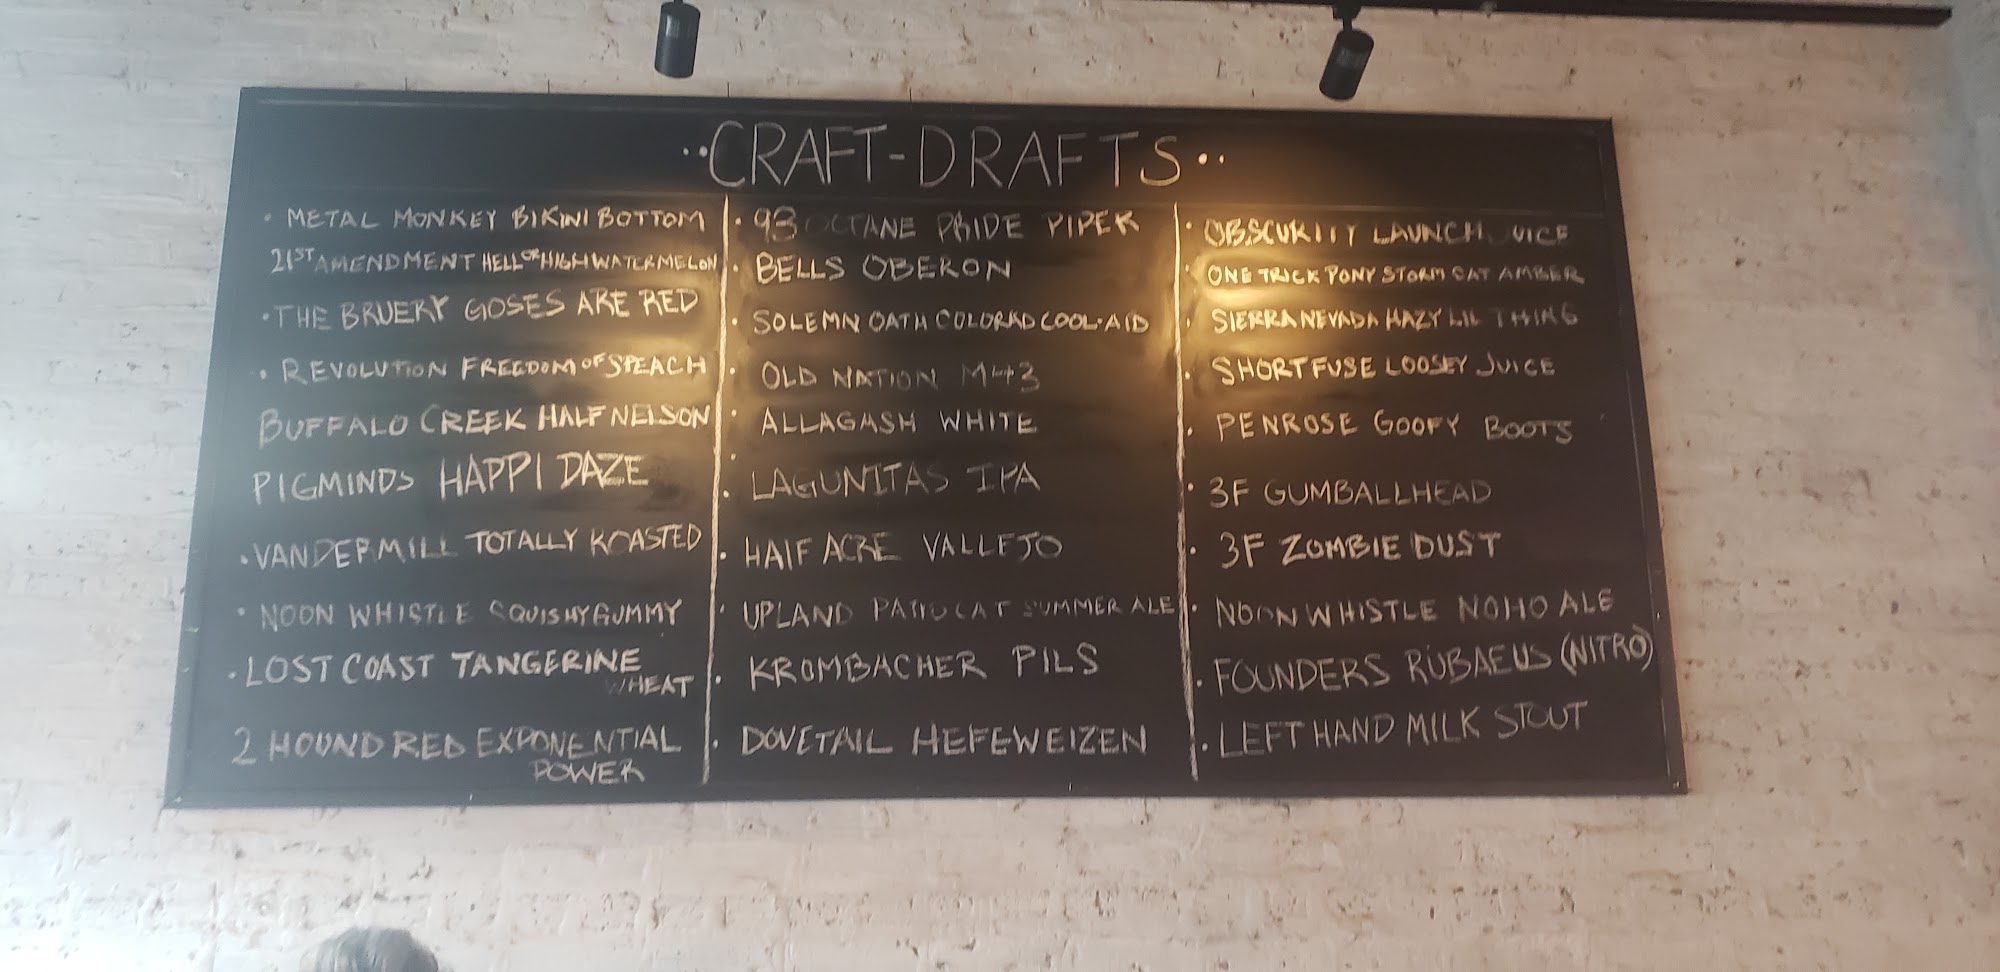 ··CRAFT-DRAFTS··
· METAL MONKEY BIKINI BOTTOM
21ST AMENDMENT HELL OR HIGH WATERMELON
· THE BRUERY GOSES ARE RED
· REVOLUTION FREEDOM OF SPEACH
BUFFALO CREEK HALF NELSON
PIGMINDS HAPPI DAZE
· VANDERMILL TOTALLY ROASTED
· NOON WHISTLE SQUISHY GUMMY
· LOST COAST TANGERINE
WHEAT
2 HOUND RED EXPONENTIAL
POWER
· 93 OCTANE PRIDE PIPER
· BELLS OBERON
· SOLEMN OATH COLORAD COOL-AID
· OLD NATION M43
· ALLAGASH WHITE
· LAGUNITAS IPA
· HALF ACRE VALLEJO
· UPLAND PATIO CAT SUMMER ALE
· KROMBACHER PILS
· DOVETAIL HEFEWEIZEN
· OBSCURITY LAUNCH JUICE
· ONE TRICK PONY STORM CAT AMBER
· SIERRA NEVADA HAZY LIL THING
· SHORT FUSE LOOSEY JUICE
· PENROSE GOOFY BOOTS
· 3F GUMBALLHEAD
· 3F ZOMBIE DUST
· NOON WHISTLE NOHO ALE
· FOUNDERS RÜBAEUS (NITRO)
· LEFT HAND MILK STOUT